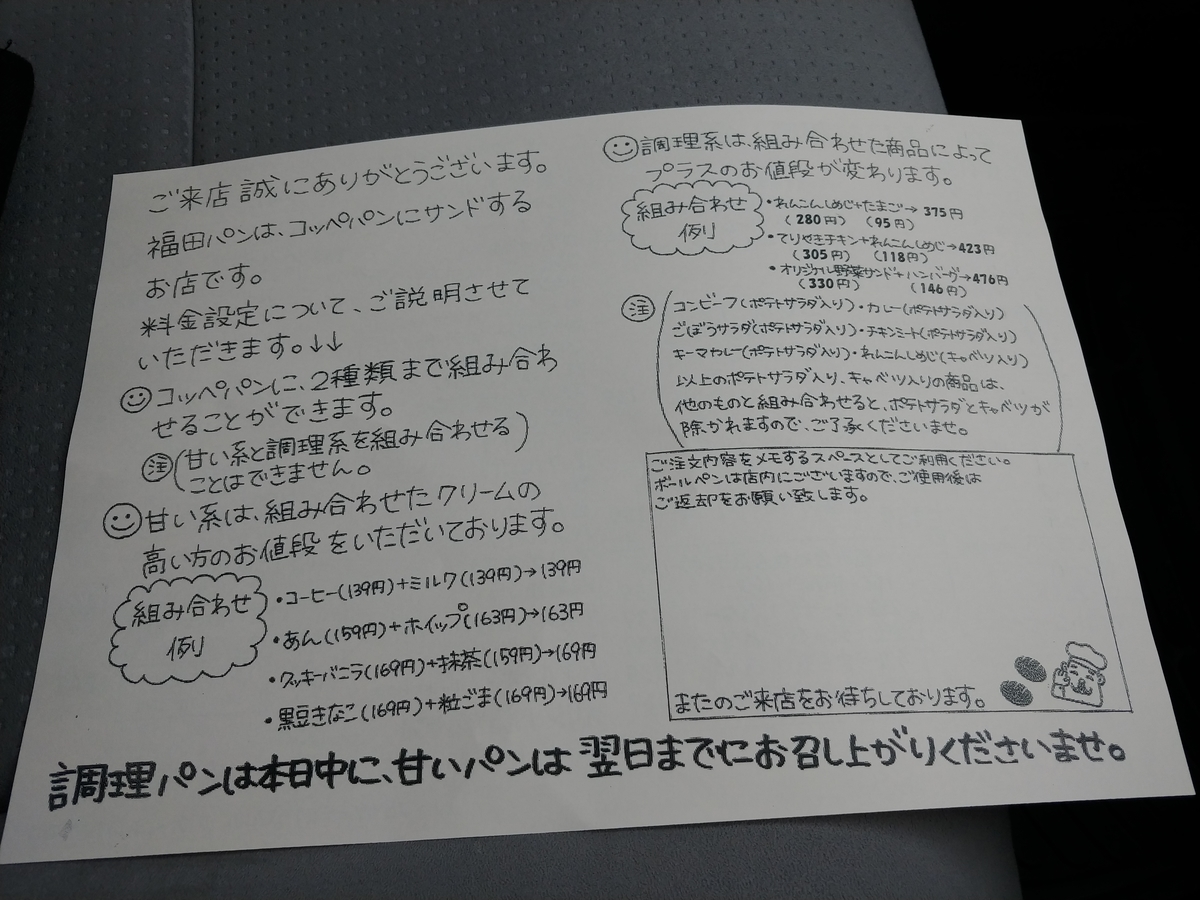 ご来店誠にありがとうございます。
福田パンは、コッペパンにサンドする
お店です。
料金設定について、ご説明させて
いただきます。↓↓
コッペパンに、2種類まで組み合わ
せることができます。
注(甘い系と調理系を組み合わせる
ことはできません。)
甘い系は、組み合わせたクリームの
高い方のお値段をいただいております。
組み合わせ
例
・コーヒー(139円)+ミルク(139円)→139円
・あん(159円)+ホイップ(163円)→163円
・クッキーバニラ(169円)+抹茶(159円)→169円
・黒豆きなこ(169円)+粒ごま(169円)→169円
調理系は、組み合わせた商品によって
プラスのお値段が変わります。
組み合わせ
例
・れんこんしめじ+たまご→375円
(280円) (95円)
・てりやきチキン+れんこんしめじ→423円
(305円) (118円)
・オリジナル野菜サンド+ハンバーグ→476円
(330円) (146円)
注(コンビーフ(ポテトサラダ入り)・カレー(ポテトサラダ入り)
ごぼうサラダ(ポテトサラダ入り)・チキンミート(ポテトサラダ入り)
キーマカレー(ポテトサラダ入り)・れんこんしめじ(キャベツ入り)
以上のポテトサラダ入り、キャベツ入りの商品は、
他のものと組み合わせると、ポテトサラダとキャベツが
除かれますので、ご了承くださいませ。)
ご注文内容をメモするスペースとしてご利用ください。
ボールペンは店内にございますので、ご使用後は
ご返却をお願い致します。
またのご来店をお待ちしております。
調理パンは本日中に、甘いパンは翌日までにお召し上がりくださいませ。